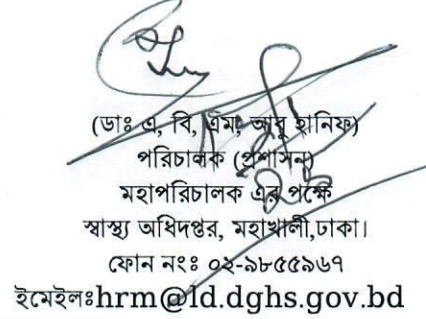 (ডাঃ এ, বি, এম, আবু হানিফ)
পরিচালক (প্রশাসন)
মহাপরিচালক এর পক্ষে
স্বাস্থ্য অধিদপ্তর, মহাখালী,ঢাকা।
ফোন নংঃ ০২-৯৮৫৫৯৬৭
ইমেইলঃhrm@ld.dghs.gov.bd